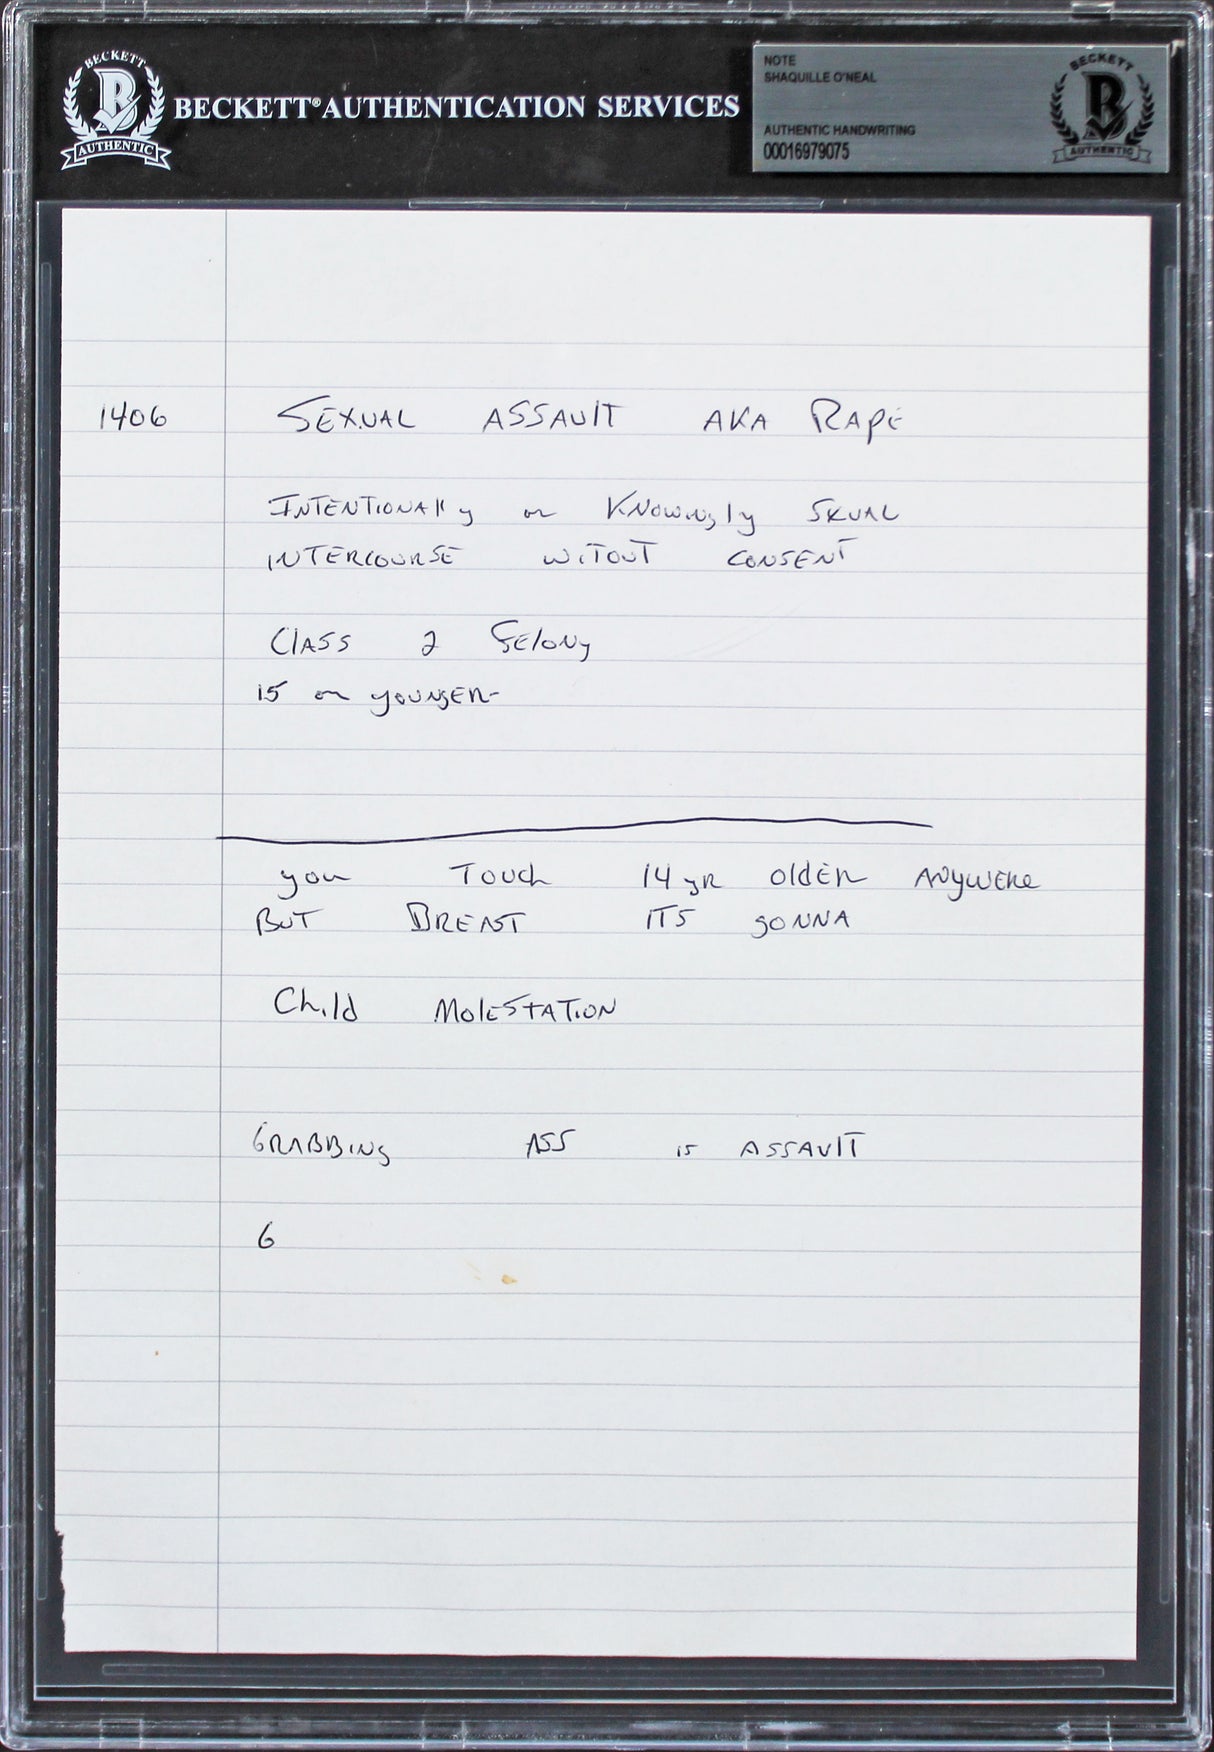 BECKETT
B
AUTHENTIC
BECKETT® AUTHENTICATION SERVICES
NOTE
SHAQUILLE O'NEAL
AUTHENTIC HANDWRITING
00016979075
BECKETT
B
AUTHENTIC
1406 SEXUAL ASSAULT AKA RAPE
INTENTIONAlly or KNOWINgly SXUAL
INTERCOURSE WITOUT CONSENT
ClASS 2 FElONy
15 or younger
you Touch 14 yR oldER ANyWERe
BUT BREAST ITS gONNA
Child MolESTATION
GRABBINg ASS is ASSAUlT
6